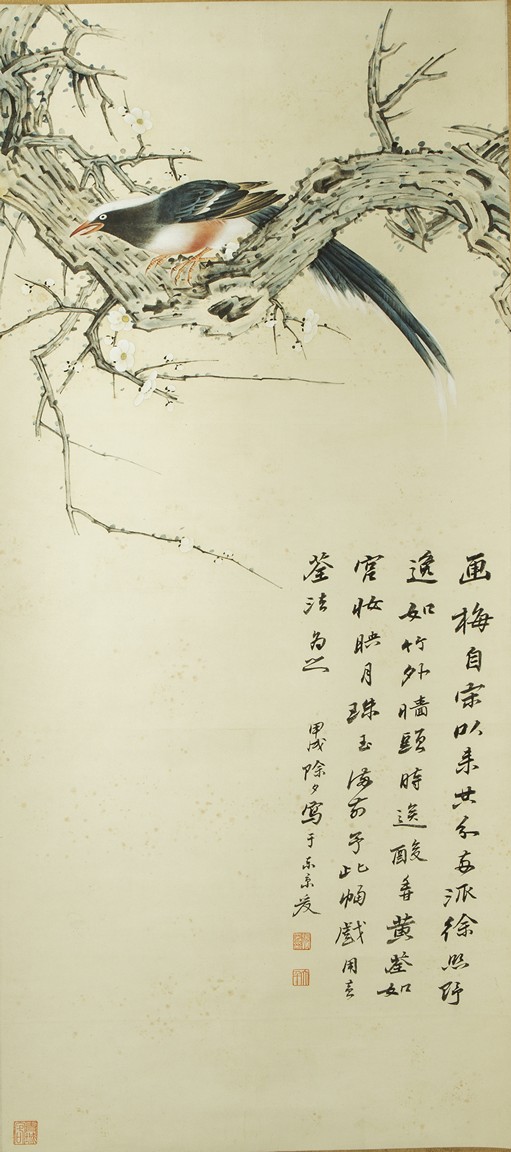 画梅自宋以来共分两派徐熙野
逸如竹外墙头时送酸香黄荃如
宫妆映月珠玉满前予此幅戏用黄
荃法为之
甲戌除夕写于东京爰